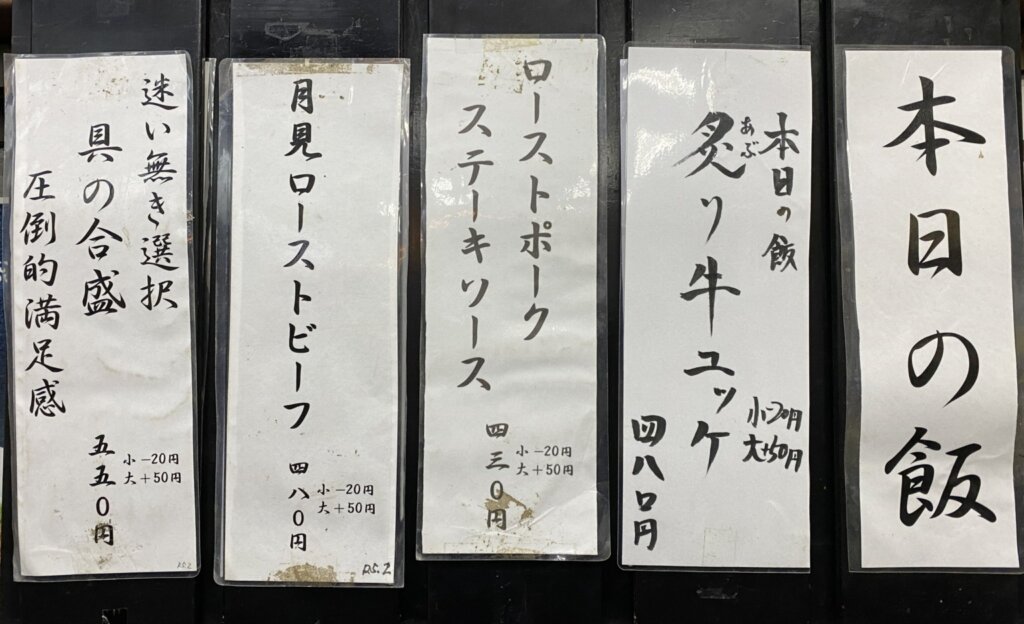 本日の飯
本日の飯
あぶ
炙り牛ユッケ
小-20円
大+50円
四八〇円
ローストポーク
ステーキソース
小-20円
大+50円
四三〇円
月見ローストビーフ
小-20円
大+50円
四八〇円
迷い無き選択
具の合盛
圧倒的満足感
小-20円
大+50円
五五〇円